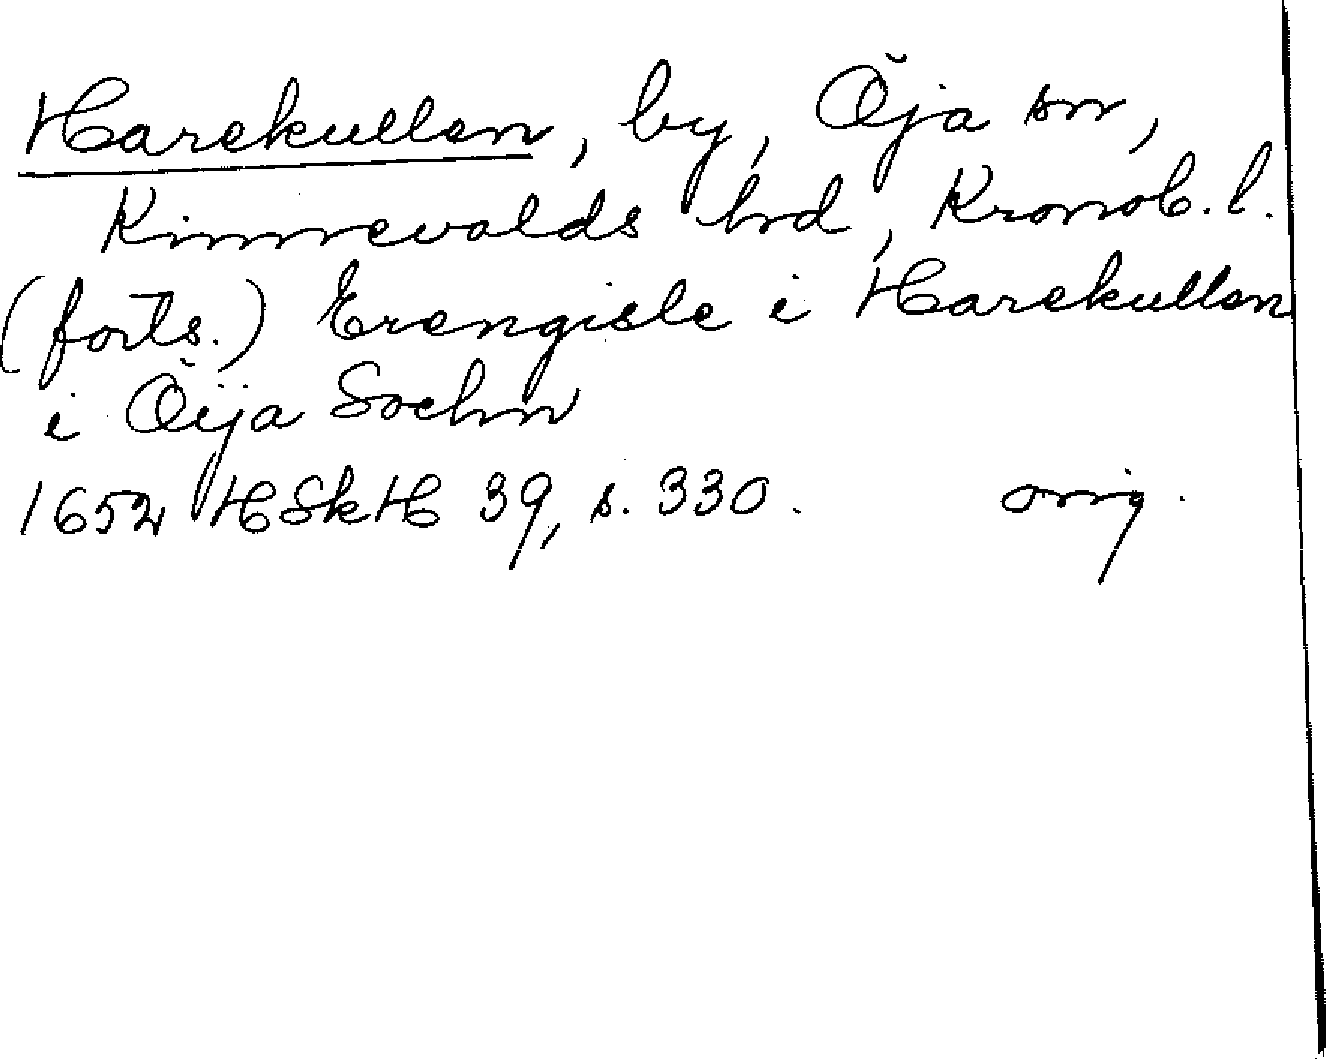 Harekullen, by, Öja sn,
Kinnevalds hrd, Kronob. l.
(forts.) Erengisle i Harekullen
i Öÿa Sochn
1652 HSkH 39, s. 330. orig.